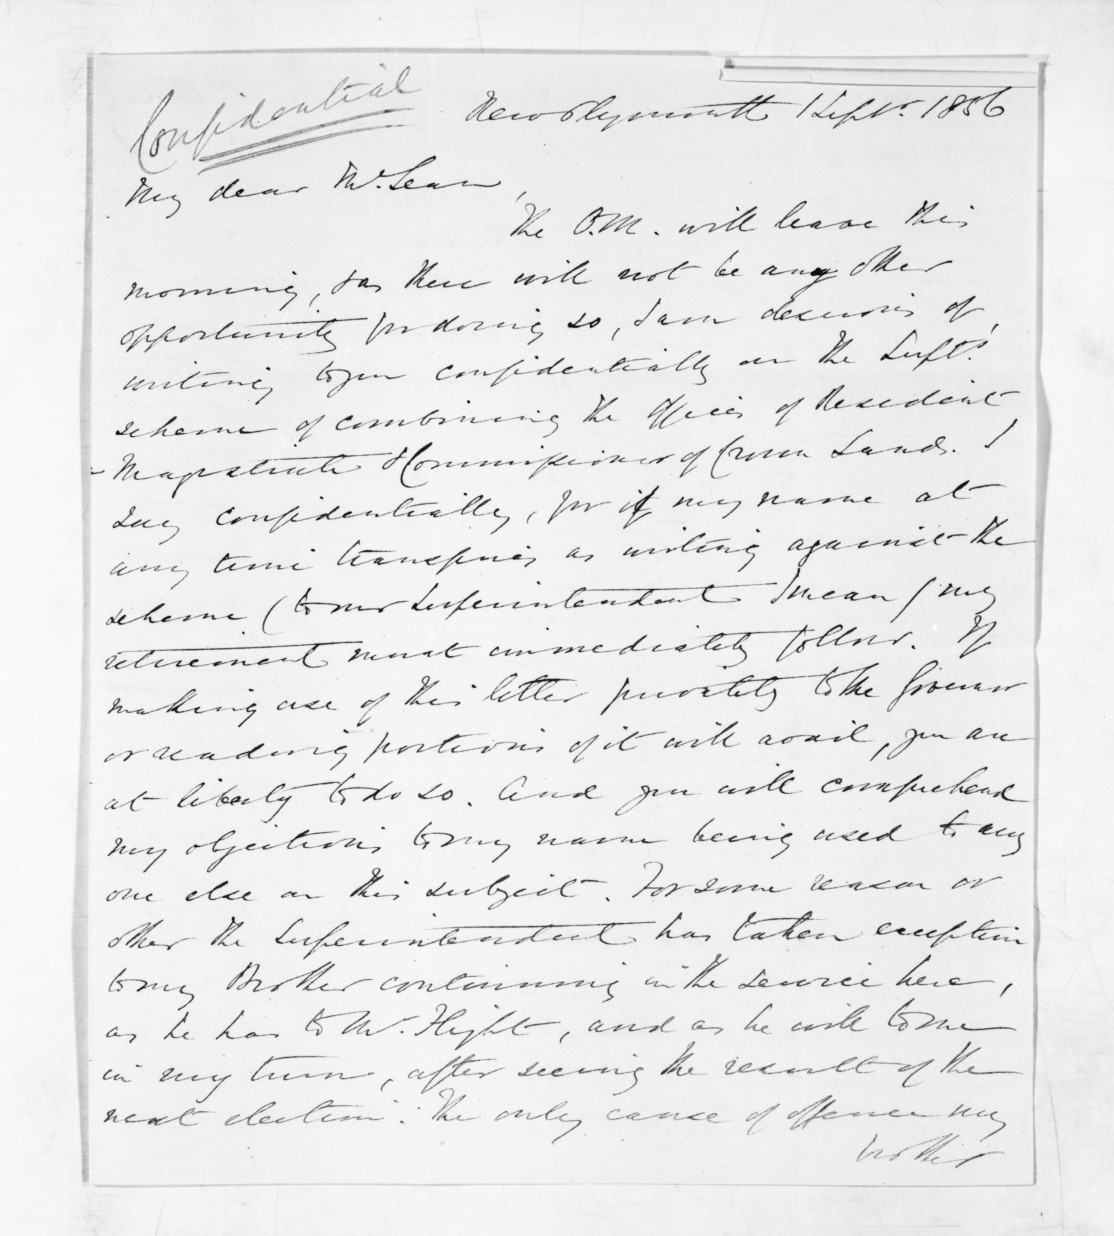 Confidential
New Plymouth 1 Septr. 1856
My dear McLean,
The O.M. will leave this
morning, & as there will not be any other
opportunity for doing so, I am desirous of,
writing to you confidentially on the Supts.
scheme of combining the offices of Resident
Magistrate & Commissioner of Crown Lands. I
say confidentially, for if my name at
any time transpires as writing against the
scheme (to our Superintendent I mean) my
retirement must immediately follow. If
making use of this letter privately to the Governor
or reading portions of it will avail, you are
at liberty to do so. And you will comprehend
my objections to my name being used to any
one else on this subject. For some reason or
other the Superintendent has taken exception
to my Brother continuing in the service here,
as he has to Mr. Flight, and as he will to me
in my turn, after seeing the result of the
next election. The only cause of offence my
brother